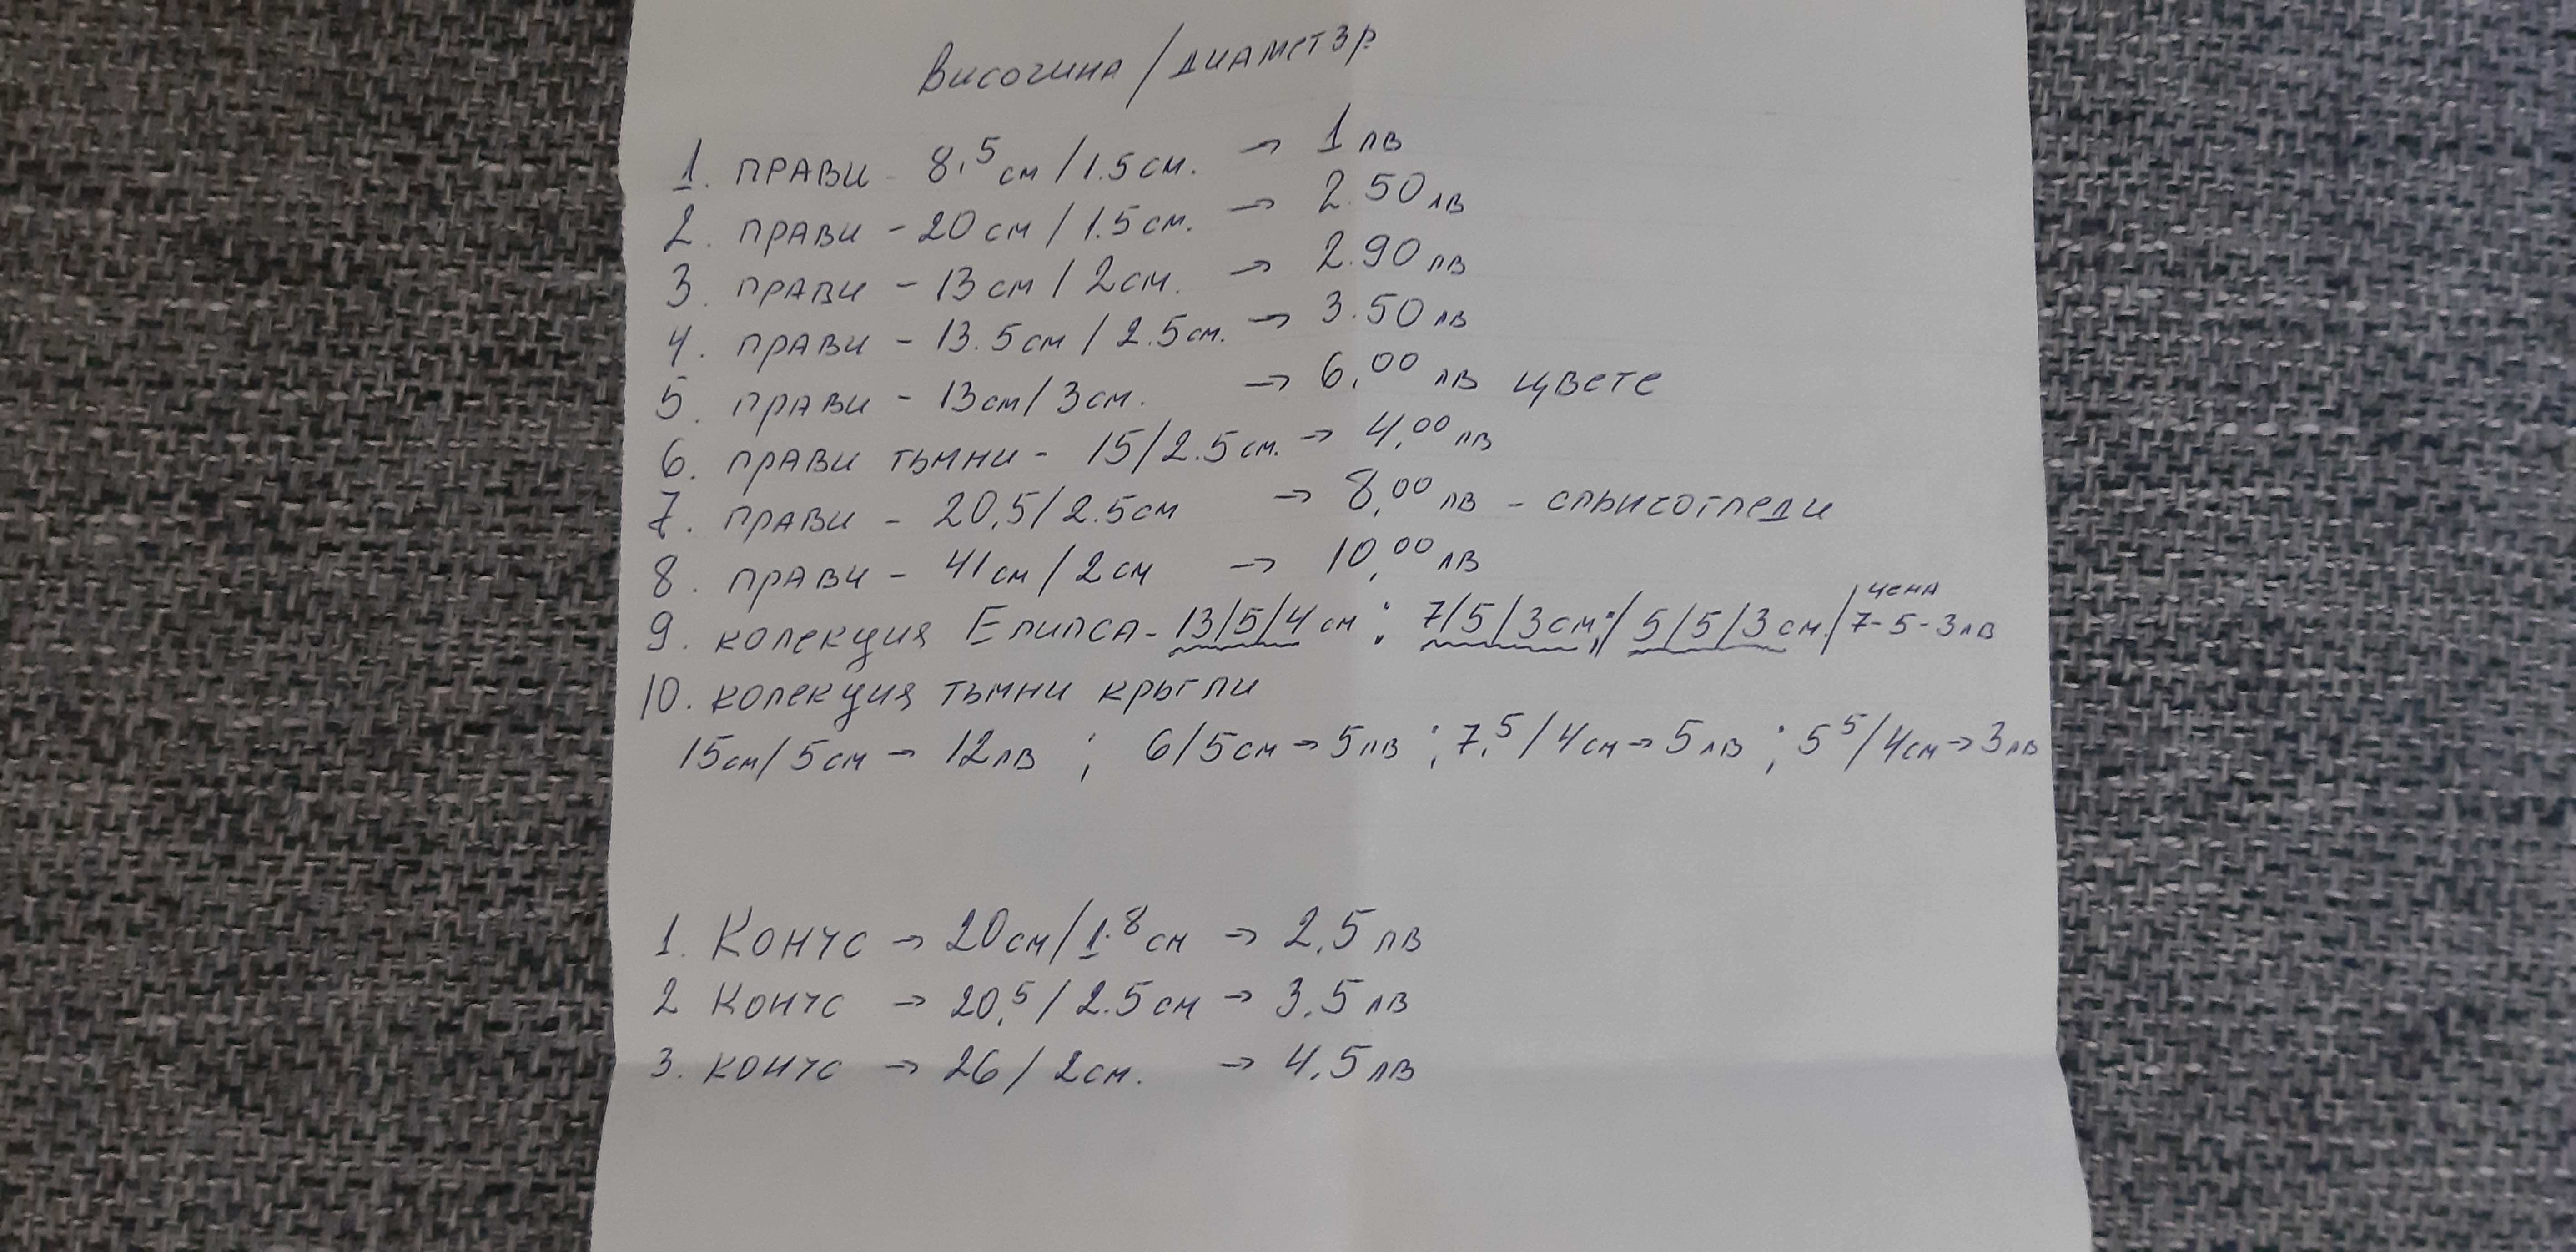 Височина/диаметър
1. прави - 8,5 см/1.5 см. → 1 лв
2. прави - 20 см / 1.5 см. → 2.50 лв
3. прави - 13 см / 2 см. → 2.90 лв
4. прави - 13.5 см / 2.5 см. → 3.50 лв
5. прави - 13 см/ 3 см. → 6,00 лв цвете
6. прави тъмни - 15/2.5 см. → 4,00 лв
7. прави - 20,5/2.5 см → 8,00 лв - слънчогледи
8. прави - 41 см / 2 см → 10,00 лв
9. колекция Елипса - 13/5/4 см ; 7/5/3 см ;/ 5/5/3 см./ цена 7-5-3 лв
10. колекция тъмни кръгли
15 см/ 5 см → 12 лв ; 6/5 см → 5 лв ; 7,5/4 см → 5 лв ; 5 5/4 см → 3 лв
1. Конус → 20 см/1.8 см → 2,5 лв
2 Конус → 20,5/ 2.5 см → 3.5 лв
3. конус → 26 / 2 см. → 4,5 лв